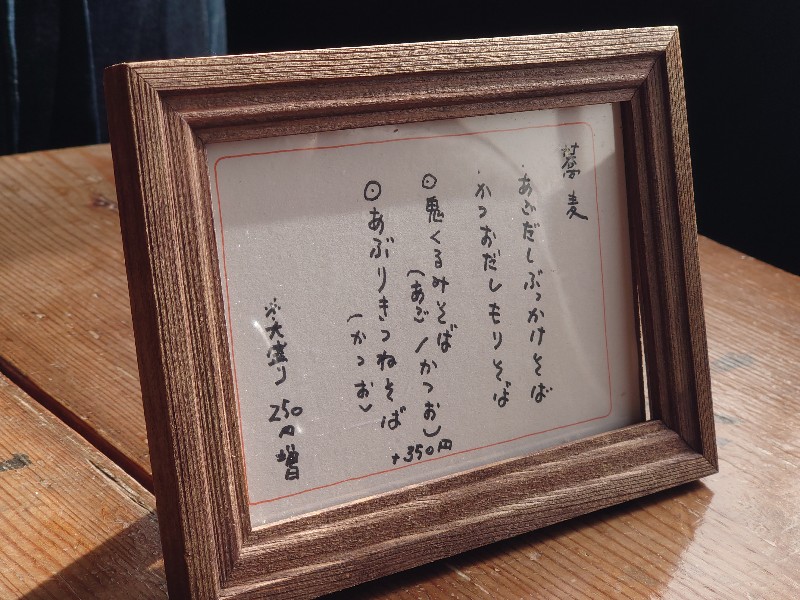 蕎麦
・あごだしぶっかけそば
・かつおだしもりそば
⊙鬼くるみそば
(あご/かつお)
+350円
⊙あぶりきつねそば
(かつお)
※大盛り 250円増